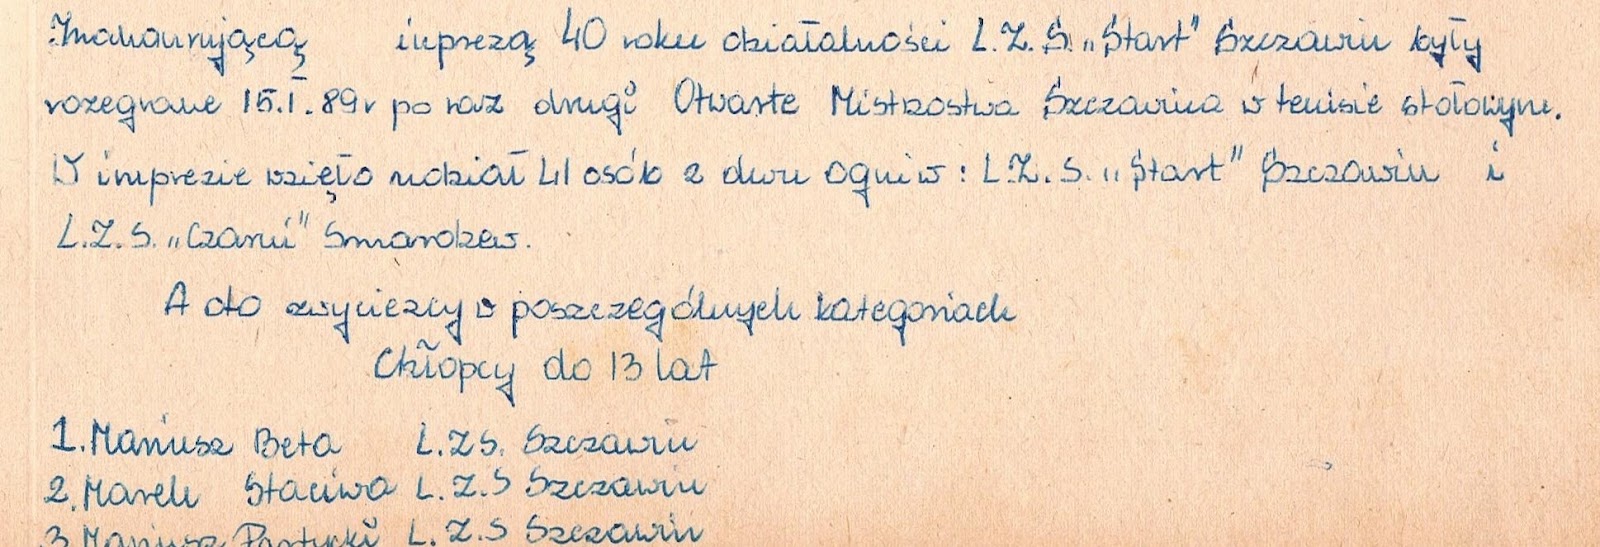 Inauurującą imprezą 40 roku działalności L.Z.S. „Start" Szczawin były
rozegrane 15.I.89r po raz drugi Otwarte Mistrzostwa Szczawina w tenisie stołowym.
W imprezie wzięło udział 41 osób z dwu ogniw: L.Z.S. „Start" Szczawin i
L.Z.S. „Czarni" Smardzew.
A oto zwyciezcy w poszczególnych kategoriach
Chłopcy do 13 lat
1. Mariusz Beta L.ZS. Szczawin
2. Marek Staciwa L.Z.S Szczawin
3. Mariusz Partycki L.Z.S Szczawin